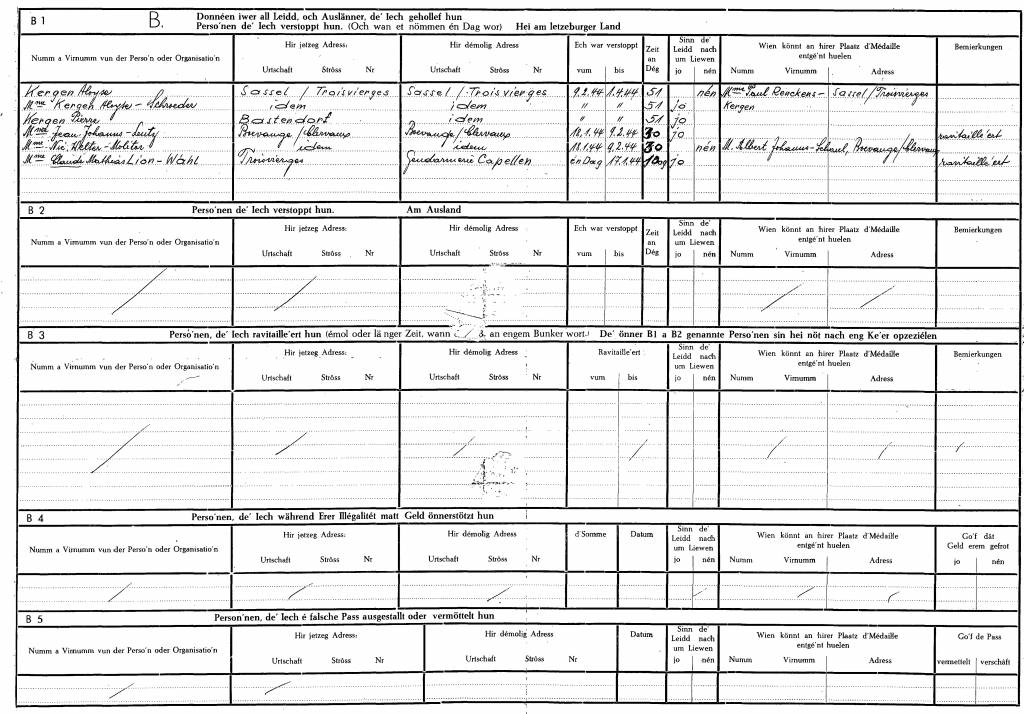 B 1
B.
Donnéen iwer all Leidd, och Auslänner, de' Iech gehollef hun
Perso'nen de' Iech verstoppt hun. (Och wan et nömmen én Dag wor) Hei am letzeburger Land
Numm a Virnumm vun der Perso'n oder Organisatio'n
Hir jetzeg Adress:
Urtschaft Ströss Nr
Hir démolig Adress
Urtschaft Ströss Nr
Ech war verstoppt
vum bis
Zeit an Dég
Sinn de' Leidd nach um Liewen
jo nén
Wien könnt an hirer Plaatz d'Médaille entgé'nt huelen
Numm Virnumm Adress
Bemierkungen
Kergen Aloyse Sassel / Troisvierges Sassel / Troisvierges 9.2.44 1.4.44 51 nén Mme Paul Renckens- Sassel/Troisvierges
Mme Kergen Aloyse - Schroeder idem idem " " 51 jo Kergen
Kergen Pierre Bastendorf idem " " 51 jo
Jean Johanns-Leuty Boevange/Clervaux Boevange/Clervaux 18.1.44 9.2.44 30 jo ravitaillé'ert
Mme Nic. Welter-Molitor idem idem 18.1.44 9.2.44 30 nén M. Albert Johanns-Schaul, Boevange/Clervaux
Mme Claude Mathias Lion-Wahl Troisvierges Gendarmerie Capellen én Dag 17.1.44 jo ravitaillé'ert
B 2
Perso'nen de' Iech verstoppt hun. Am Ausland
Numm a Virnumm vun der Perso'n oder Organisatio'n
Hir jetzeg Adress:
Urtschaft Ströss Nr
Hir démolig Adress
Urtschaft Ströss Nr
Ech war verstoppt
vum bis
Zeit an Dég
Sinn de' Leidd nach um Liewen
jo nén
Wien könnt an hirer Plaatz d'Médaille entgé'nt huelen
Numm Virnumm Adress
Bemierkungen
B 3
Perso'nen, de' Iech ravitaille'ert hun (émol oder länger Zeit, wann an engem Bunker wort.) De' önner B1 a B2 genannte Perso'nen sin hei nöt nach eng Ke'er opzeziélen
Numm a Virnumm vun der Perso'n oder Organisatio'n
Hir jetzeg Adress:
Urtschaft Ströss Nr
Hir démolig Adress
Urtschaft Ströss Nr
Ravitaille'ert
vum bis
Sinn de' Leidd nach um Liewen
jo nén
Wien könnt an hirer Plaatz d'Médaille entgé'nt huelen
Numm Virnumm Adress
Bemierkungen
B 4
Perso'nen, de' Iech während Erer Illégalitét matt Geld önnerstötzt hun
Numm a Virnumm vun der Perso'n oder Organisatio'n
Hir jetzeg Adress:
Urtschaft Ströss Nr
Hir démolig Adress
Urtschaft Ströss Nr
d'Somme
Datum
Sinn de' Leidd nach um Liewen
jo nén
Wien könnt an hirer Plaatz d'Médaille entgé'nt huelen
Numm Virnumm Adress
Go'f dât Geld erem gefrot
jo nén
B 5
Person'nen, de' Iech é falsche Pass ausgestallt oder vermöttelt hun
Numm a Virnumm vun der Perso'n oder Organisatio'n
Hir jetzeg Adress:
Urtschaft Ströss Nr
Hir démolig Adress
Urtschaft Ströss Nr
Datum
Sinn de' Leidd nach um Liewen
jo nén
Wien könnt an hirer Plaatz d'Médaille entgé'nt huelen
Numm Virnumm Adress
Go'f de Pass
vermettelt verschâft